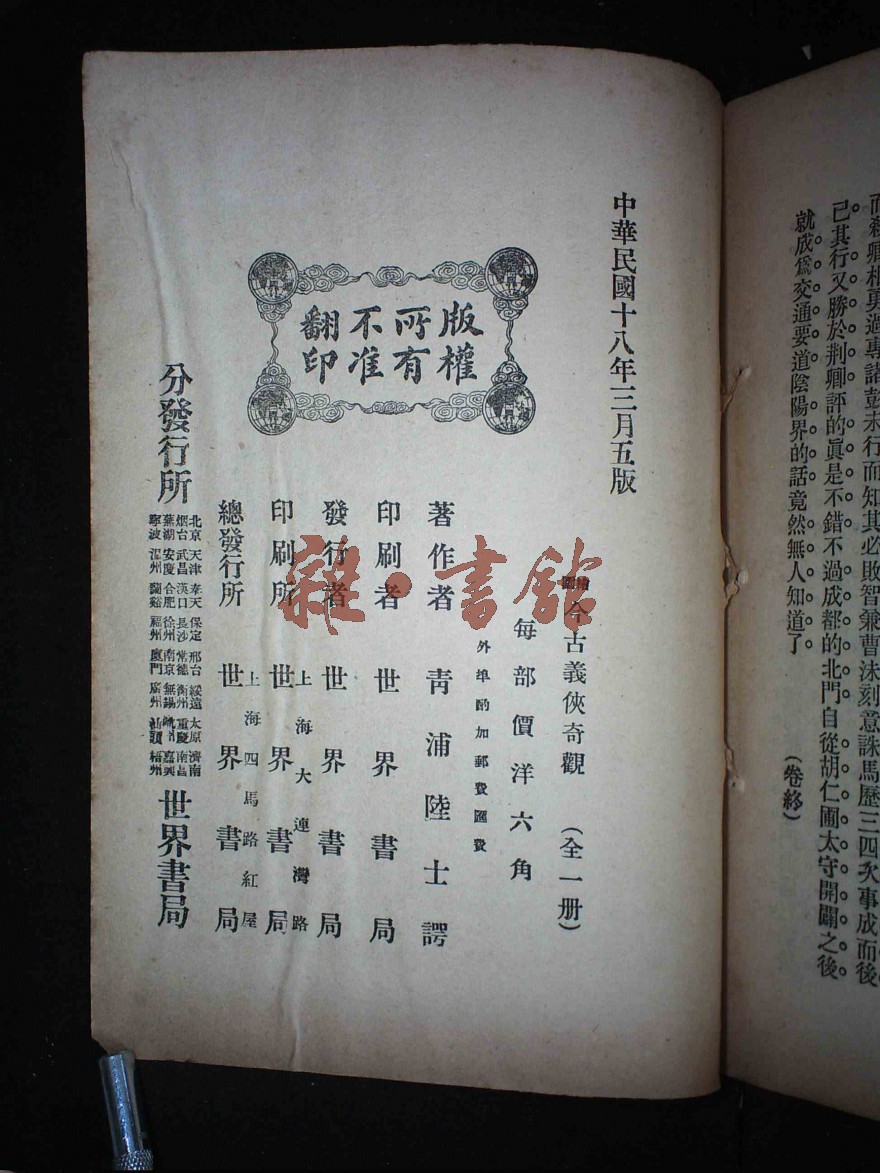 而殺卿相勇過專諸彭未行而知其必敗智兼曹沬刻意誅馬歷三四次事成而後
已其行又勝於荆卿評的眞是不錯不過成都的北門自從胡仁圃太守開闢之後
就成爲交通要道陰陽界的話竟然無人知道了
(卷終)
中華民國十八年三月五版
版權
所有
不准
翻印
繪圖 今古義俠奇觀 (全一册)
每部價洋六角
外埠酌加郵費匯費
著作者 青浦陸士諤
印刷者 世界書局
發行者 世界書局
上海大連灣路
印刷所 世界書局
上海四馬路紅屋
總發行所 世界書局
分發行所
北京 天津 奉天 保定 邢台 綏遠 太原 濟南
烟台 武昌 漢口 長沙 常德 衡州 重慶 南昌
蕪湖 安慶 合肥 徐州 南京 無錫 嘉興
寧波 溫州 蘭谿 福州 廈門 廣州 汕頭 梧州
世界書局
雜·書館